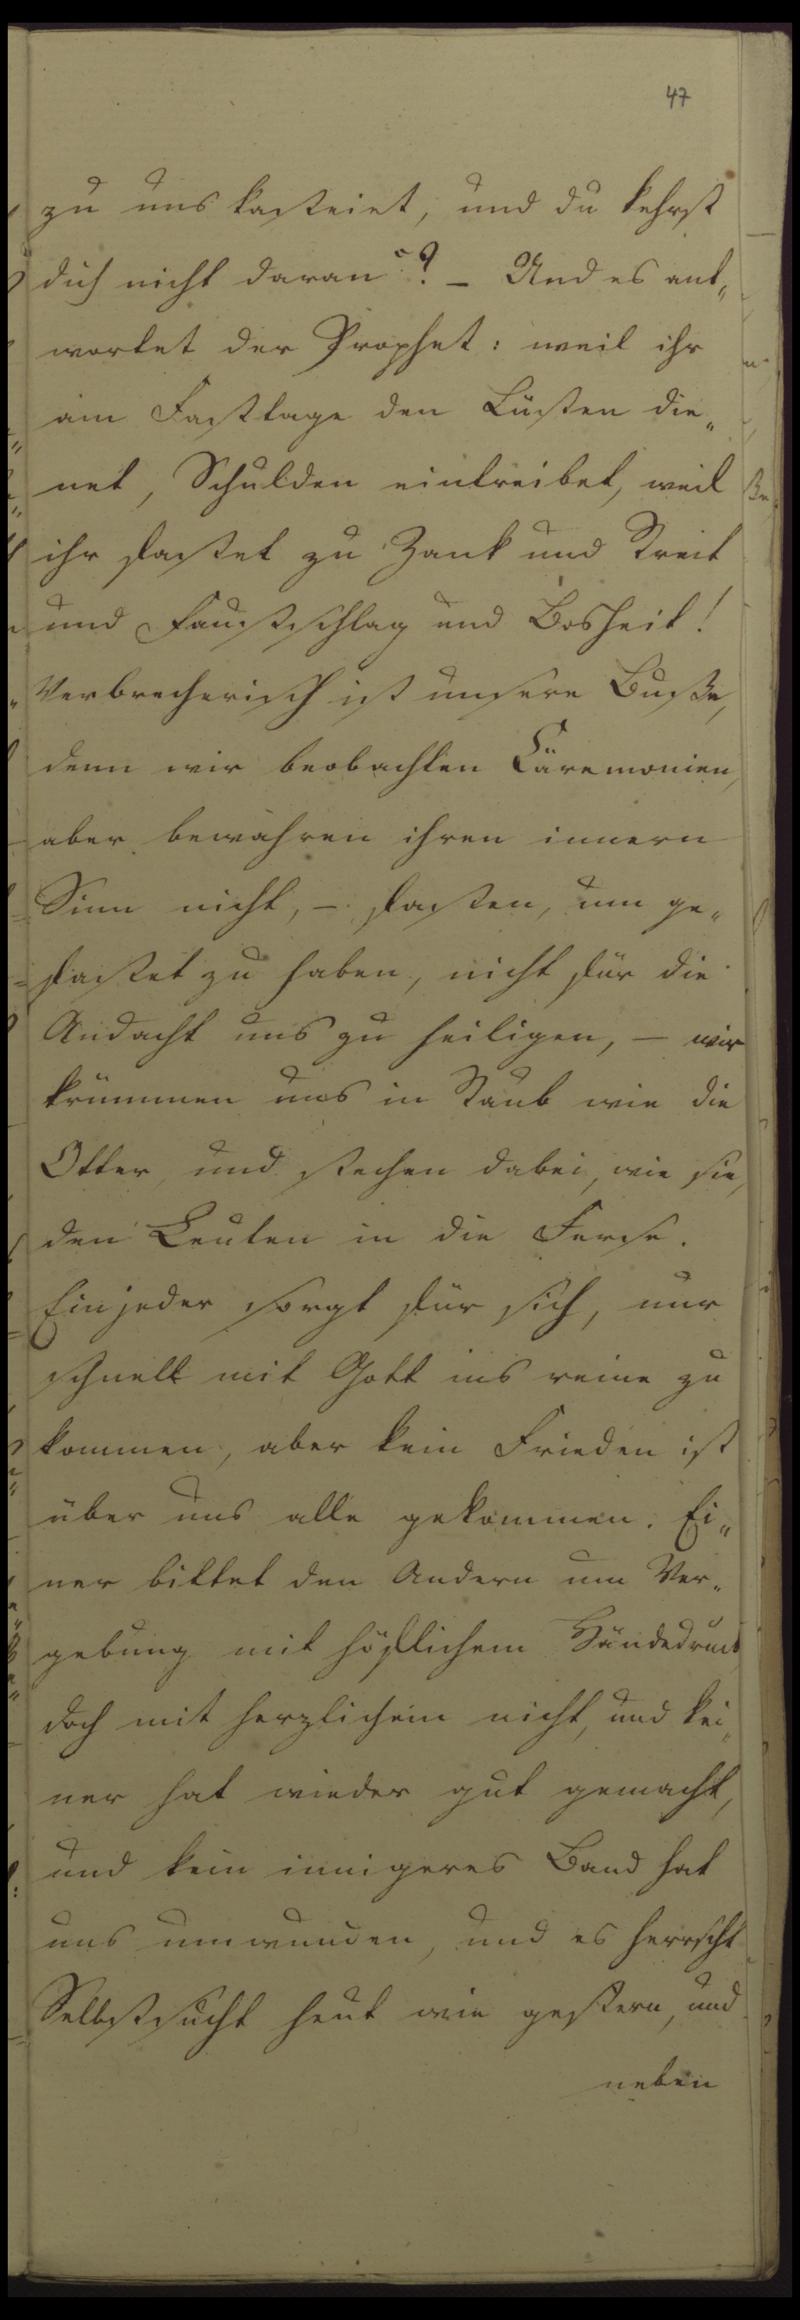 47
zu uns kasteiet, und du kehrst
dich nicht daran"? – Und es ant„
wortet der Prophet: weil ihr
am Fasttage den Lüsten die„
net, Schulden eintreibet, weil
ihr fastet zu Zank und Streit
und Faustschlag und Bosheit!
Verbrecherisch ist unsere Buße,
denn wir beobachten Cäremonien,
aber bewahren ihren innern
Sinn nicht, – fasten, um ge„
fastet zu haben, nicht für die
Andacht uns zu heiligen, – wir
krümmen uns in Staub wie die
Otter, und stechen dabei, wie sie,
den Leuten in die Ferse.
Ein jeder sorgt für sich, nur
schnell mit Gott ins reine zu
kommen, aber kein Frieden ist
über uns alle gekommen. Ei„
ner bittet den Andern um Ver„
gebung mit höflichem Händedruck
doch mit herzlichem nicht, und kei„
ner hat wieder gut gemacht,
und kein innigeres Band hat
uns umwunden, und es herrscht
Selbstsucht heut wie gestern, und
neben